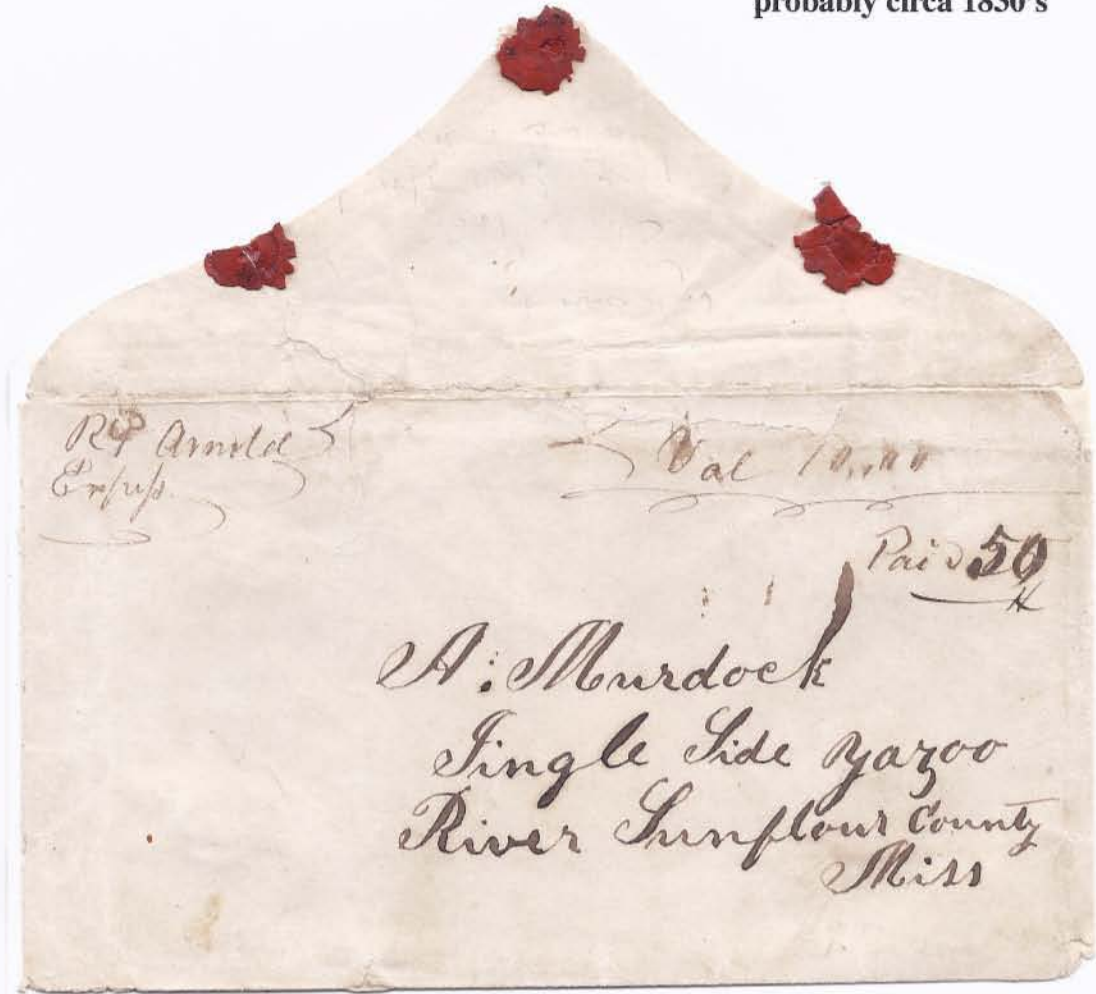 probably circa 1850's
Arnold
Val
Paid 50
A: Murdock
Jingle Side Yazoo
River Sunflour County
Miss